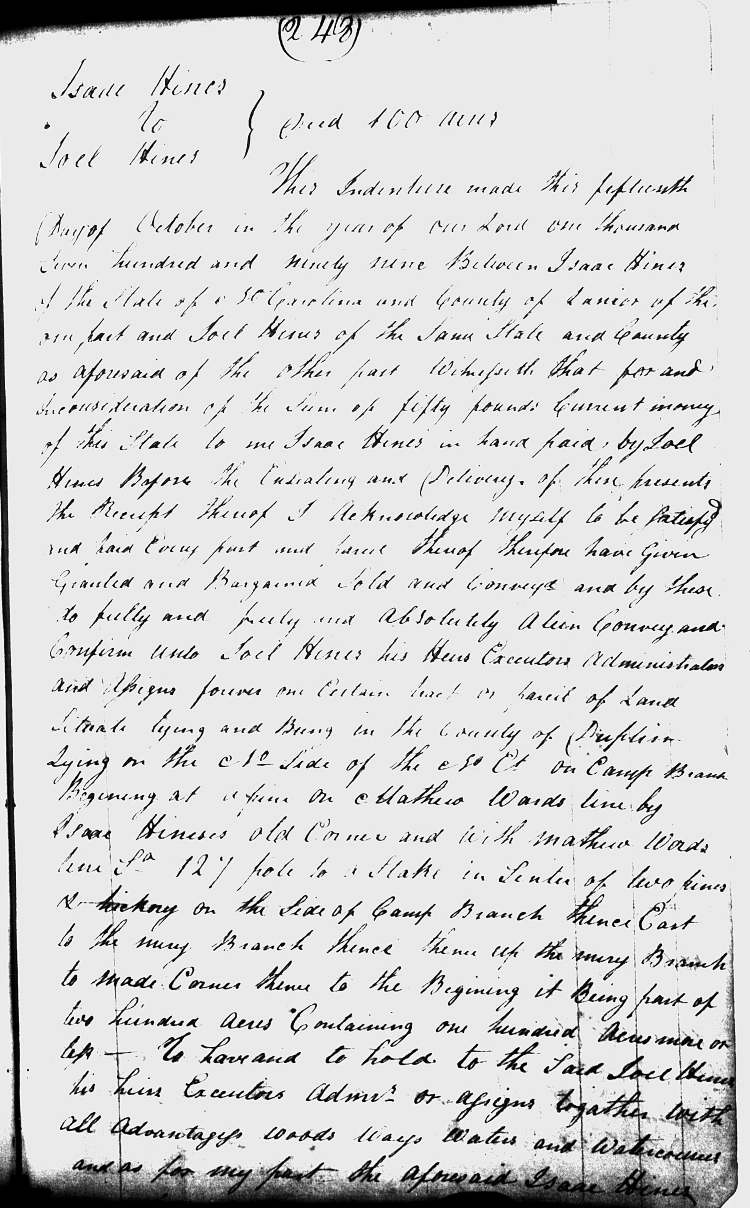 (243)
Isaac Hines
To } Deed 100 acres
Joel Hines
This Indenture made this fifteenth
Day of October in the year of our Lord one thousand
Seven hundred and ninety nine Between Isaac Hines
of the State of No Carolina and County of Lenior of the
one part and Joel Hines of the Same State and County
as aforesaid of the other part Witnesseth that for and
inconsideration of the Sum of fifty pounds Current money
of this State to me Isaac Hines in hand paid by Joel
Hines Before the Ensealing and Delivery of these presents
the Receipt thereof I Acknowledge myself to be Satisfyd
and paid Every part and parcel thereof therefore have Given
Granted and Bargained Sold and Conveyd and by these
do fully and freely and Absolutely Alien Convey and
Confirm unto Joel Hines his Heirs Executors Administrators
and Assigns forever one Certain tract or parcel of Land
Situate lying and Being in the County of Duplin
Lying on the No Side of the No Et on Camp Branch
Begining at a pine on Mathew Wards line by
Isaac Hineses old Corner and with mathew Wards
line So 127 pole to a Stake in Senter of two pines
& hickory on the Side of Camp Branch thence East
to the mirey Branch thence thence up the mirey Branch
to made Corner thence to the Begining it Being part of
two hundred acres Containing one hundred acres more or
less — To have and to hold to the Said Joel Hines
his heirs Executors Admrs or asigns togather with
all Advantages woods ways Waters and Watercourses
and as for my part the aforesaid Isaac Hines